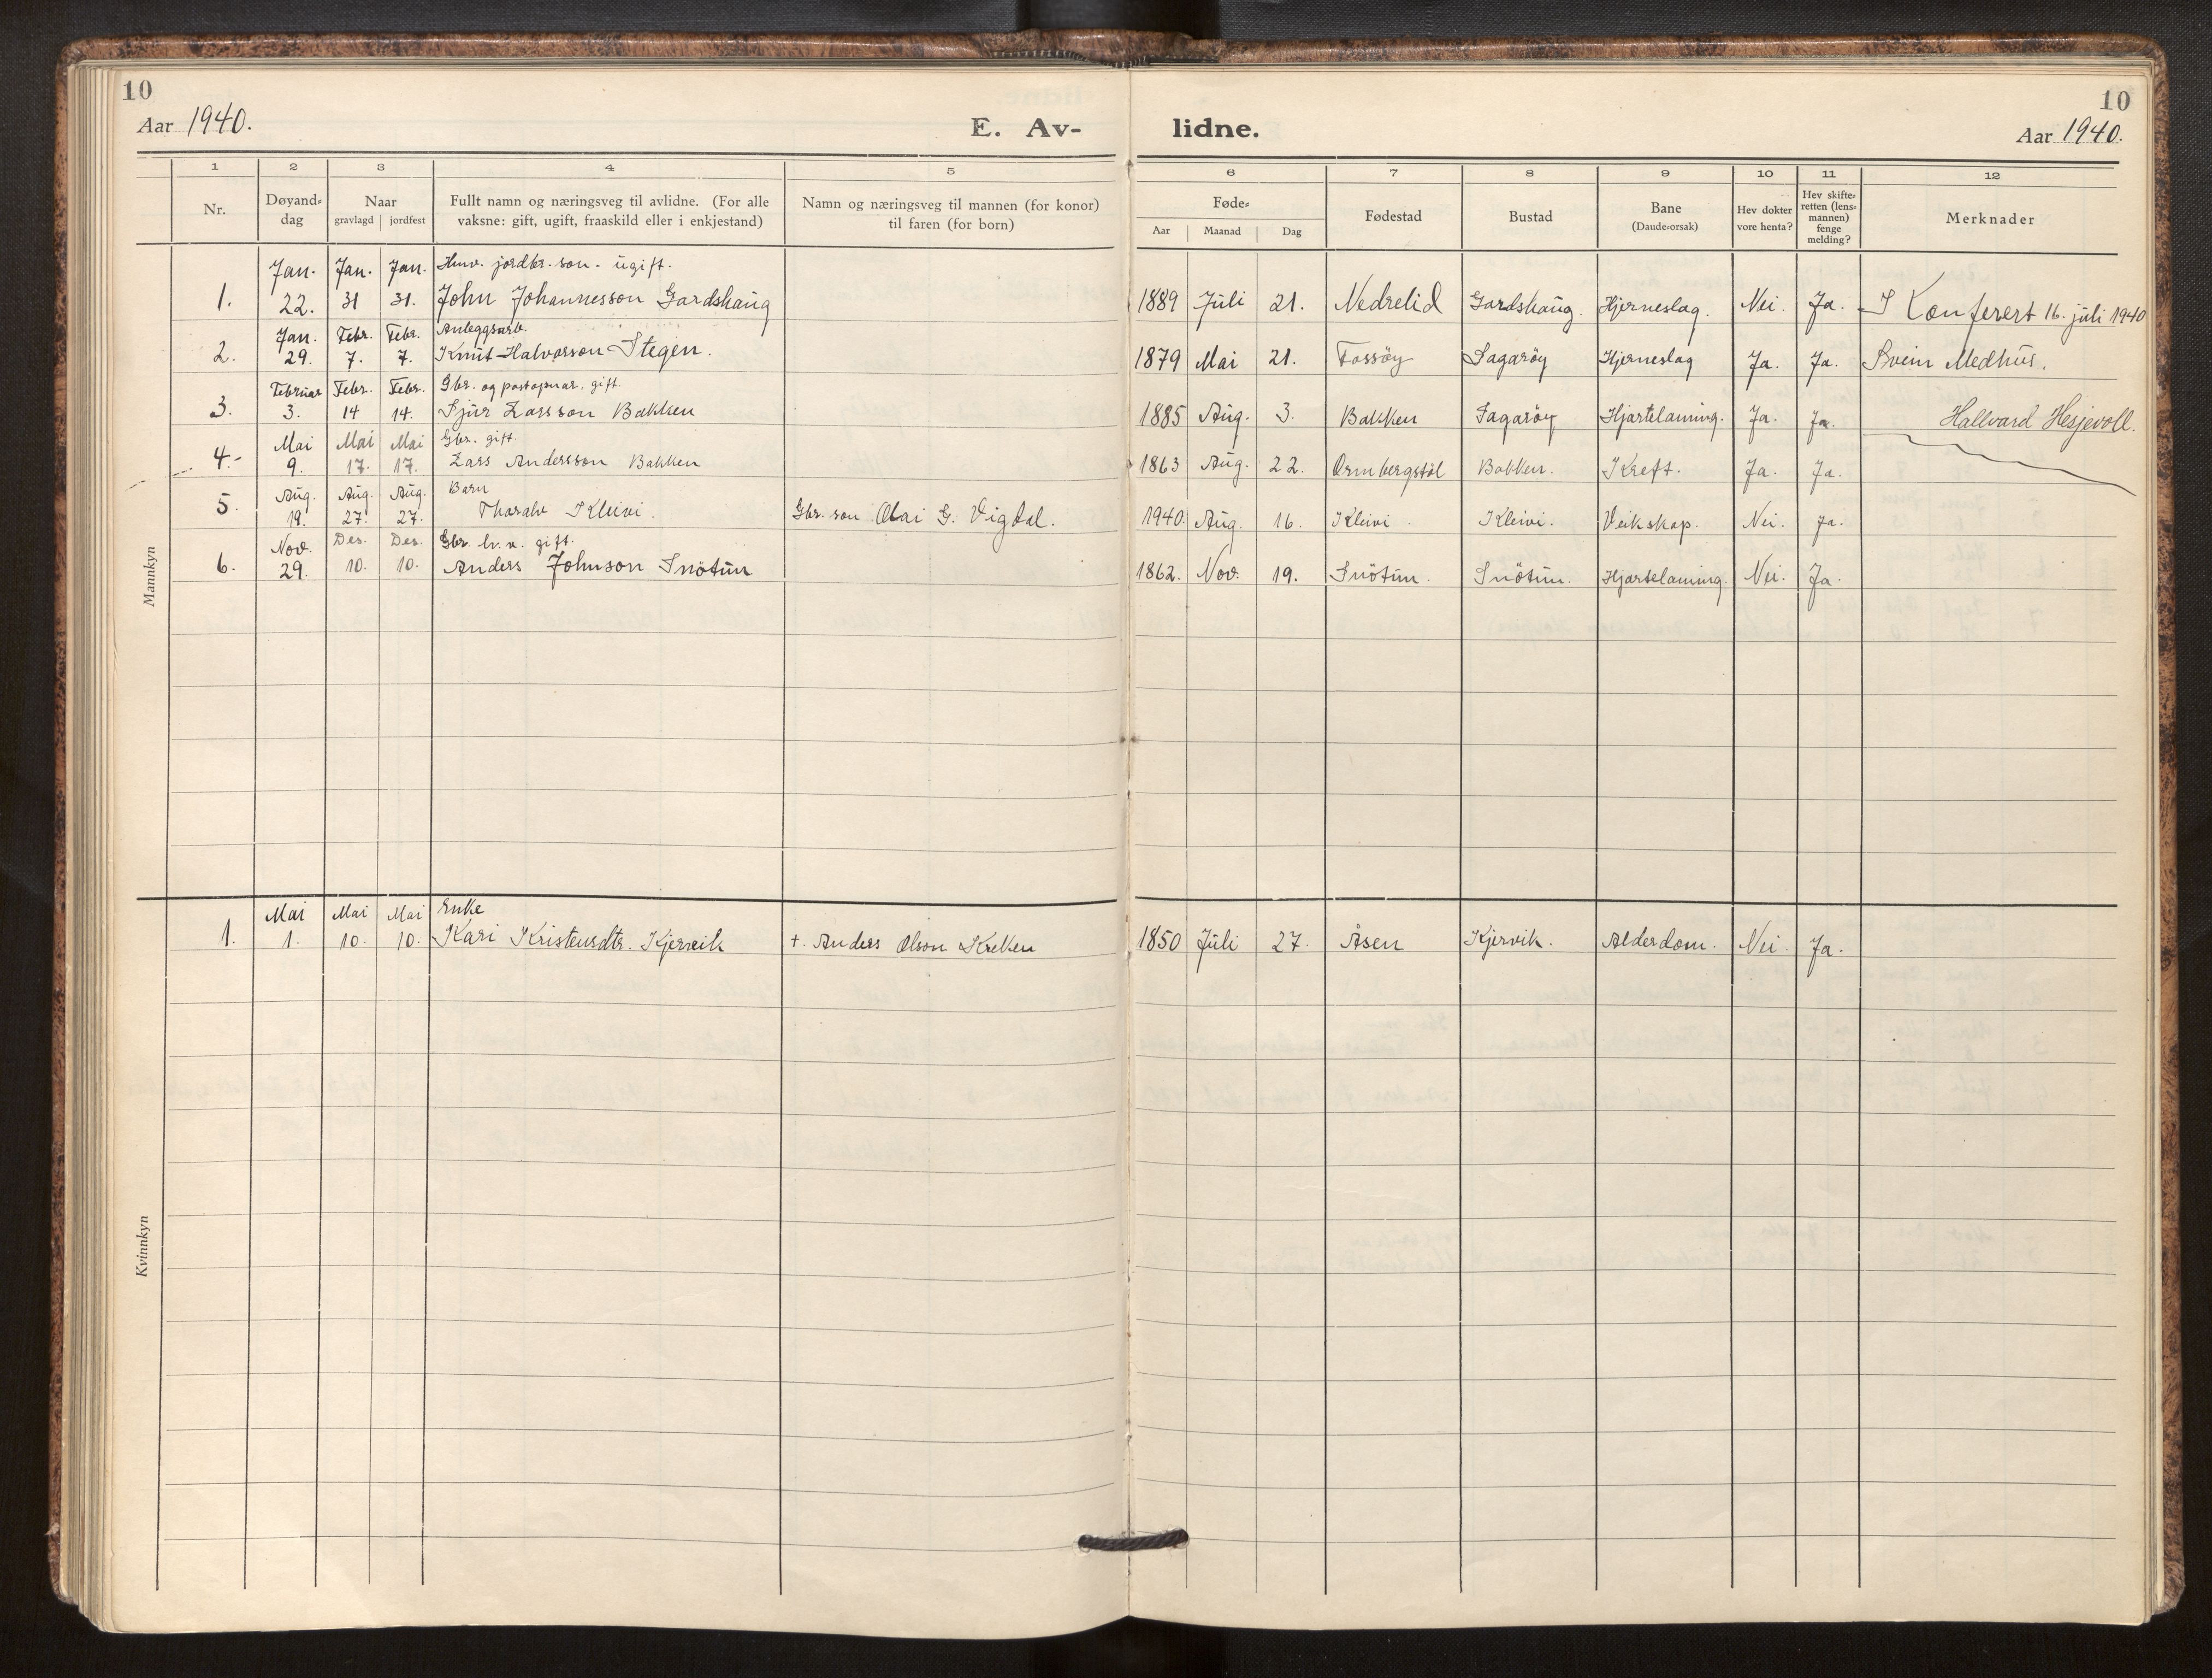 10
Aar 1940.
E. Av-
lidne.
10
Aar 1940.
1 2 3 4 5 6 7 8 9 10 11 12
Nr.
Døyand=
dag
Naar
gravlagd jordfest
Fullt namn og næringsveg til avlidne. (For alle
vaksne: gift, ugift, fraaskild eller i enkjestand)
Namn og næringsveg til mannen (for konor)
til faren (for born)
Føde=
Aar Maanad Dag
Fødestad
Bustad
Bane
(Daude=orsak)
Hev dokter
vore henta?
Hev skifte=
retten (lens=
mannen)
fenge
melding?
Merknader
Mannkyn
Jan. Jan. Jan. jordbr. son. ugift.
1. 22. 31 31. John Johannesson Gardshaug 1889 Juli 21. Nedrelid Gardshaug. Hjerneslag. Nei. Ja. Konferert 16. juli 1940
Jan. Febr. Febr. Anleggsarb.
2. 29. 7. 7. Knut Halvorson Stegen. 1879 Mai 21. Fossöy Sagaröy Hjerneslag Ja. Ja. Svein Medhus.
Februar Febr. Febr. Gbr. og postopnar, gift.
3. 3. 14 14. Sjur Larsson Bakken 1885 Aug. 3. Bakken Sagaröy Hjartelaming. Ja. Ja. Hallvard Hesjevoll.
Mai Mai Mai Gbr. gift.
4. 9. 17. 17. Lars Andersson Bakken 1863 Aug. 22. Ormbergstöl Bakken. Kreft. Ja. Ja.
Aug. Aug. Aug. Barn
5. 19. 27. 27. Thoralv Kleivi. Gbr. son Olai G. Vigdal. 1940. Aug. 16. Kleivi. Kleivi. Veikskap. Nei. Ja.
Nov. Des. Des. Gbr. gift.
6. 29. 10. 10. Anders Johnson Snötun 1862. Nov. 19. Snötun. Snötun. Hjartelaming. Nei. Ja.
Kvinnkyn
Mai Mai Mai Enke
1. 1. 10. 10. Kari Kristensdtr. Kjervik +. Anders Olson Kreken 1850 Juli 27. Åsen Kjervik. Alderdom. Nei. Ja.